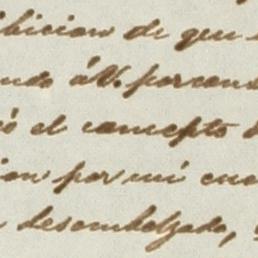 ibicion de que
ndo á V. por con
ó el concepto
ion por mi cue
desembolzado,